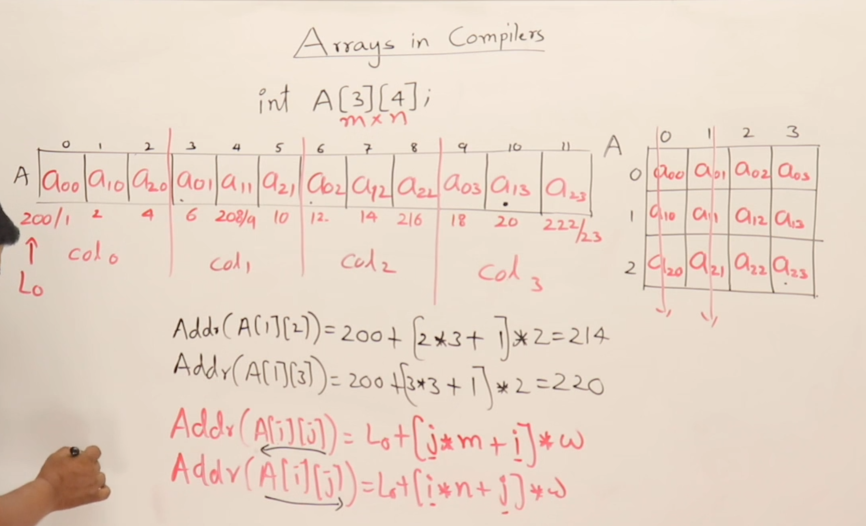 Arrays in Compilers
int A[3][4];
m×n
0 1 2 3 4 5 6 7 8 9 10 11
A a00 a10 a20 a01 a11 a21 a02 a12 a22 a03 a13 a23
200/1 2 4 6 208/9 10 12 14 216 18 20 222/23
L0 col0 col1 col2 col3
A 0 1 2 3
0 a00 a01 a02 a03
1 a10 a11 a12 a13
2 a20 a21 a22 a23
Addr(A[1][2])=200+[2*3+1]*2=214
Addr(A[1][3])=200+[3*3+1]*2=220
Addr(A[i][j])=L0+[j*m+i]*w
Addr(A[i][j])=L0+[i*n+j]*w